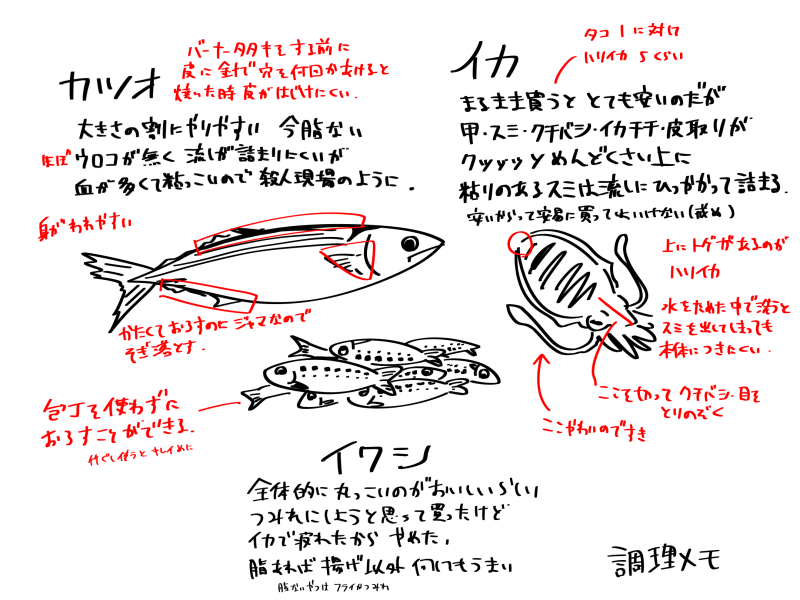 カツオ
バーナータタキをする前に
皮に金串で穴を何回かあけると
焼った時皮がはじけにくい.
大きさの割にやりやすい 今脂ない
ほぼ ウロコが無く 流しが詰まりにくいが
血が多くて粘っこいので 殺人現場のように.
身がわれやすい
かたくておろすのに ジャマなので
そぎ落とす.
イカ
タコ1に対して
ハリイカ5くらい
まるまま買うと とても安いのだが
甲・スミ・クチバシ・イカチチ・皮取りが
クッッッソめんどくさい上に
粘りのあるスミは流しにひっかかって詰まる.
安いからって安易に買ってはいけない(戒め)
上にトゲがあるのが
ハリイカ
水をためた中で洗うと
スミを出してしまっても
本体につきにくい.
ここを切って クチバシ・目を
とりのぞく
ここやわいのですき
包丁を使わずに
おろすことができる.
竹ぐし使うと キレイめに
イワシ
全体的に丸っこいのがおいしいらしい
つみれにしようと思って買ったけど
イカで疲れたから やめた.
脂あれば 揚げ以外 何にてもうまい
脂ないやつは フライかつみれ
調理メモ